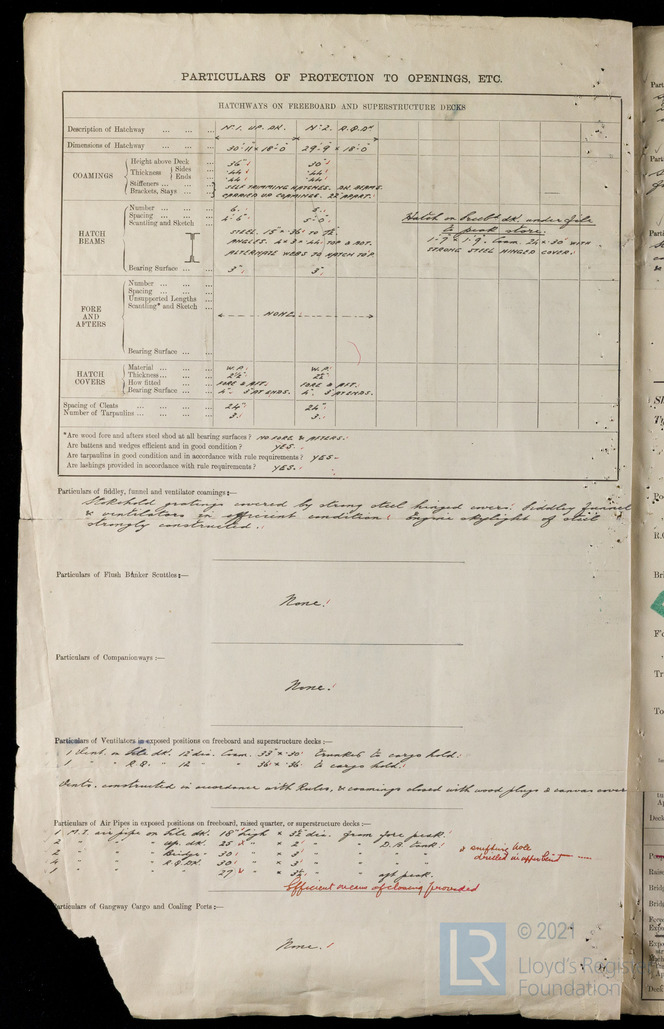 PARTICULARS OF PROTECTION TO OPENINGS, ETC.
HATCHWAYS ON FREEBOARD AND SUPERSTRUCTURE DECKS
Description of Hatchway ... ... ... No 1. UP. DK. No 2. R.Q.Dk
Dimensions of Hatchway ... ... ... 30'-11" x 18'-0" 29'-9" x 18'-0"
COAMINGS
Height above Deck ... 36" 30"
Thickness { Sides ... .44 .44
Ends ... .44 .44
Stiffeners ... ... SELF TRIMMING HATCHES. DK. BEAMS
Brackets, Stays ... ... CARRIED UP COAMINGS. APART.
HATCH BEAMS
Number ... ... ... 6. 5.
Spacing ... ... ... 4'-6" 5'-0"
Scantling and Sketch ... STEEL. 15" x .36 TO
ANGLES. 4 x 3 x .44 TOP & BOT.
ALTERNATE WEBS TO HATCH TOP.
Bearing Surface ... ... 3" 3"
Hatch on Freebd dk. under
to peak store.
1'-9" x 1'-9". Coam. 24 x .30 WITH
STRONG STEEL HINGED COVER.
FORE AND AFTERS
Number ... ... ...
Spacing ... ... ...
Unsupported Lengths
Scantling* and Sketch ... NONE
Bearing Surface ... ...
HATCH COVERS
Material ... ... ... W.P. W.P.
Thickness ... ... ... 2½" 2½"
How fitted ... ... FORE & AFT. FORE & AFT.
Bearing Surface ... ... 4". 5" AT ENDS. 4". 5" AT ENDS.
Spacing of Cleats ... ... ... ... 24" 24"
Number of Tarpaulins ... ... ... ... 3. 3.
*Are wood fore and afters steel shod at all bearing surfaces? NO FORE & AFTERS.
Are battens and wedges efficient and in good condition? YES.
Are tarpaulins in good condition and in accordance with rule requirements? YES.
Are lashings provided in accordance with rule requirements? YES.
Particulars of fiddley, funnel and ventilator coamings:—
Stokehold gratings covered by strong steel hinged covers. Fiddley funnel
& ventilators in efficient condition. Engine skylight of steel
strongly constructed.
Particulars of Flush Bunker Scuttles:—
None.
Particulars of Companionways:—
None.
Particulars of Ventilators in exposed positions on freeboard and superstructure decks:—
1 Vent. on dk. 12" dia. Coam. 33" x .30 trunked to cargo hold.
1 " " R.Q. " 12 " " 36" x .36 to cargo hold.
Vents. constructed in accordance with Rules, & coamings closed with wood plugs & canvas cover
Particulars of Air Pipes in exposed positions on freeboard, raised quarter, or superstructure decks:—
1 air pipe on dk. 18" high x dia. from fore peak.
2 " " " up. dk. 25 " x 2" " " D.B. tank.
2 " " " Bridge " 30 " x 3" "
4 " " " R.Q.DK. 30 " x 3" "
1 " " " 27 " x " " aft peak.
& snifting hole
drilled in upper bend
Efficient means of closing provided
Particulars of Gangway Cargo and Coaling Ports:—
None.
LR
© 2021
Lloyd's Register
Foundation